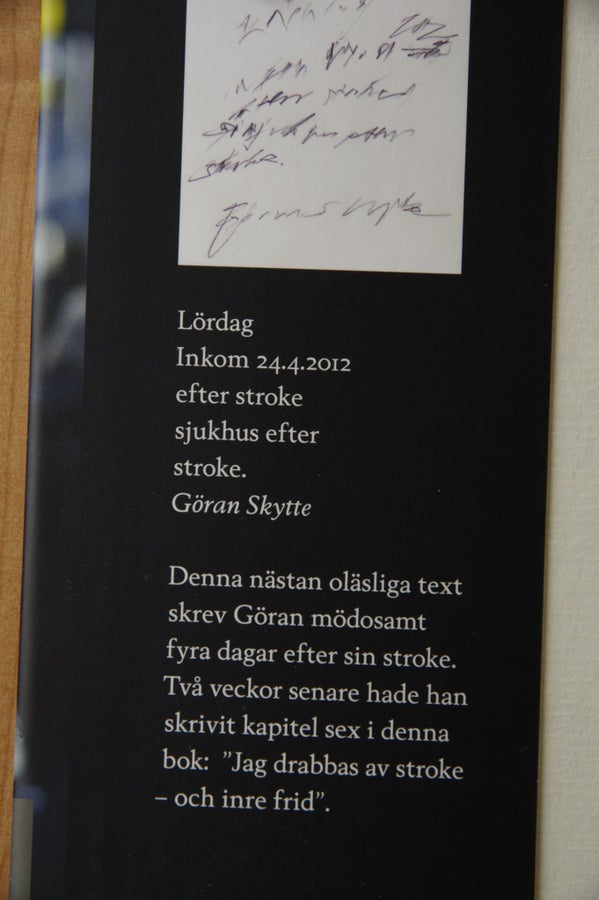 efter
stroke.
Lördag
Inkom 24.4.2012
efter stroke
sjukhus efter
stroke.
Göran Skytte
Denna nästan oläsliga text
skrev Göran mödosamt
fyra dagar efter sin stroke.
Två veckor senare hade han
skrivit kapitel sex i denna
bok: ”Jag drabbas av stroke
– och inre frid”.